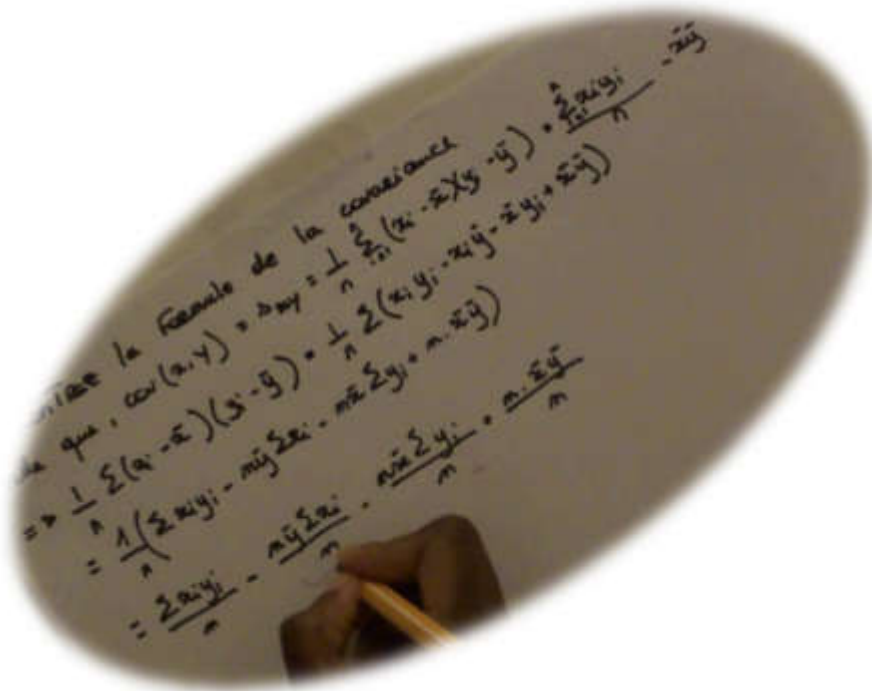 la Formule de la covariance
que, cov(x,y) = s_xy = 1/n Σ_{i=1}^{n} (xi - x̄)(yi - ȳ) = Σ_{i=1}^{n} xiyi / n - x̄ȳ
=> 1/n Σ(xi - x̄)(yi - ȳ) = 1/n Σ(xiyi - xiȳ - x̄yi + x̄ȳ)
= 1/n (Σxiyi - nȳΣxi - nx̄Σyi + n.x̄ȳ)
= Σxiyi / n - nȳΣxi / n - nx̄Σyi / n + n.x̄ȳ / n